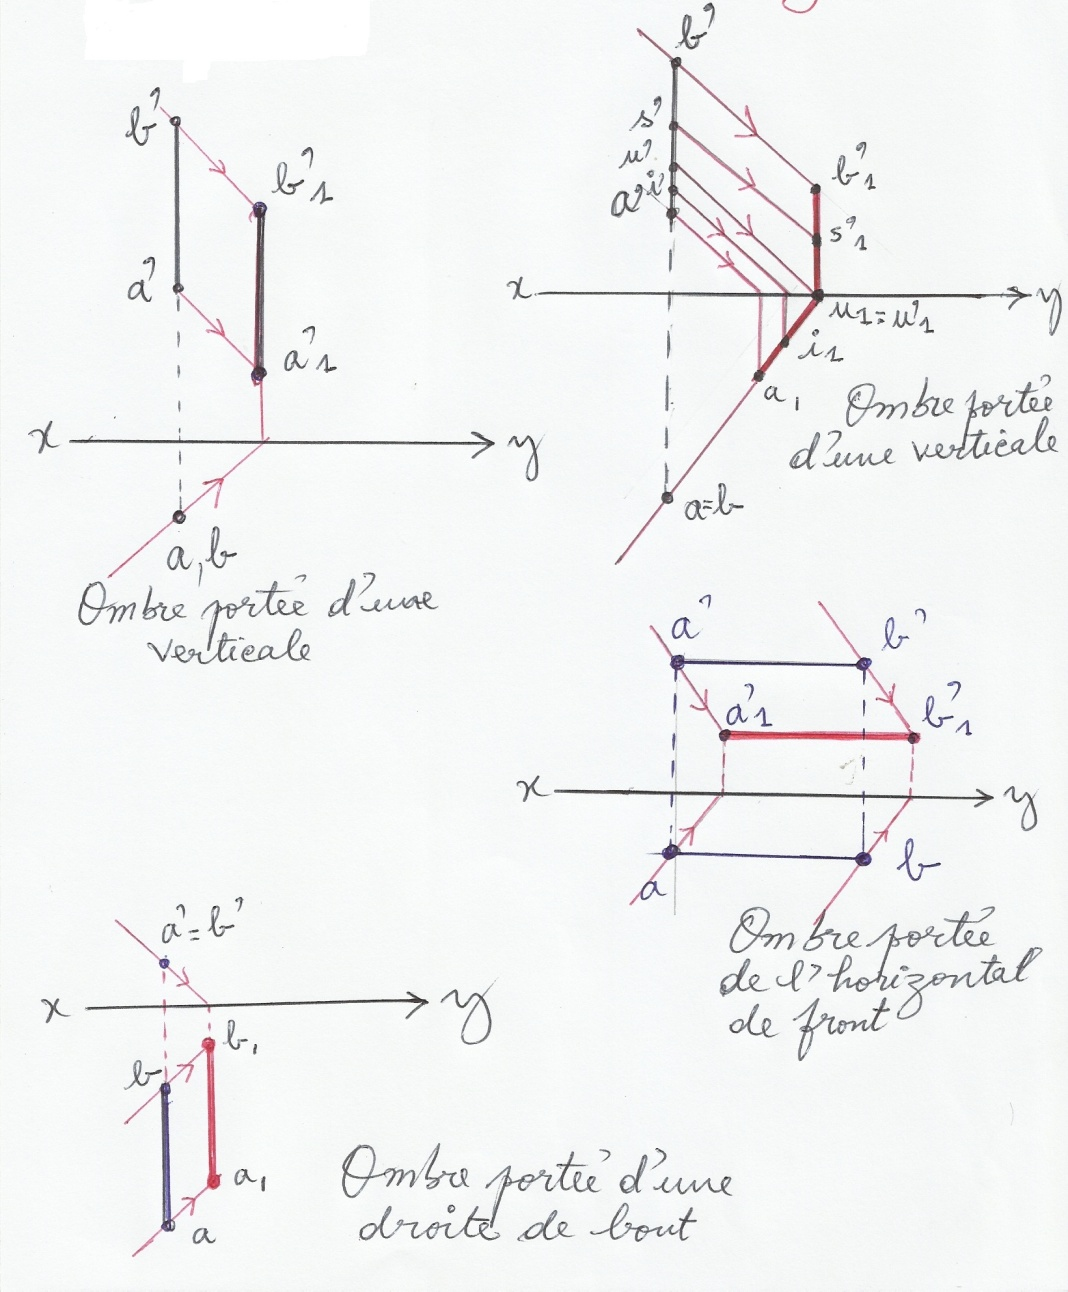 b'
b'1
a'
a'1
x
y
a, b
Ombre portée d'une
verticale
b'
s'
u'
i'
a'
b'1
s'1
x
y
u1=u'1
i1
a1
a=b
Ombre portée
d'une verticale
a'
b'
a'1
b'1
x
y
a
b
Ombre portée
de l'horizontal
de front
a'=b'
x
y
b1
b
a1
a
Ombre portée d'une
droite de bout